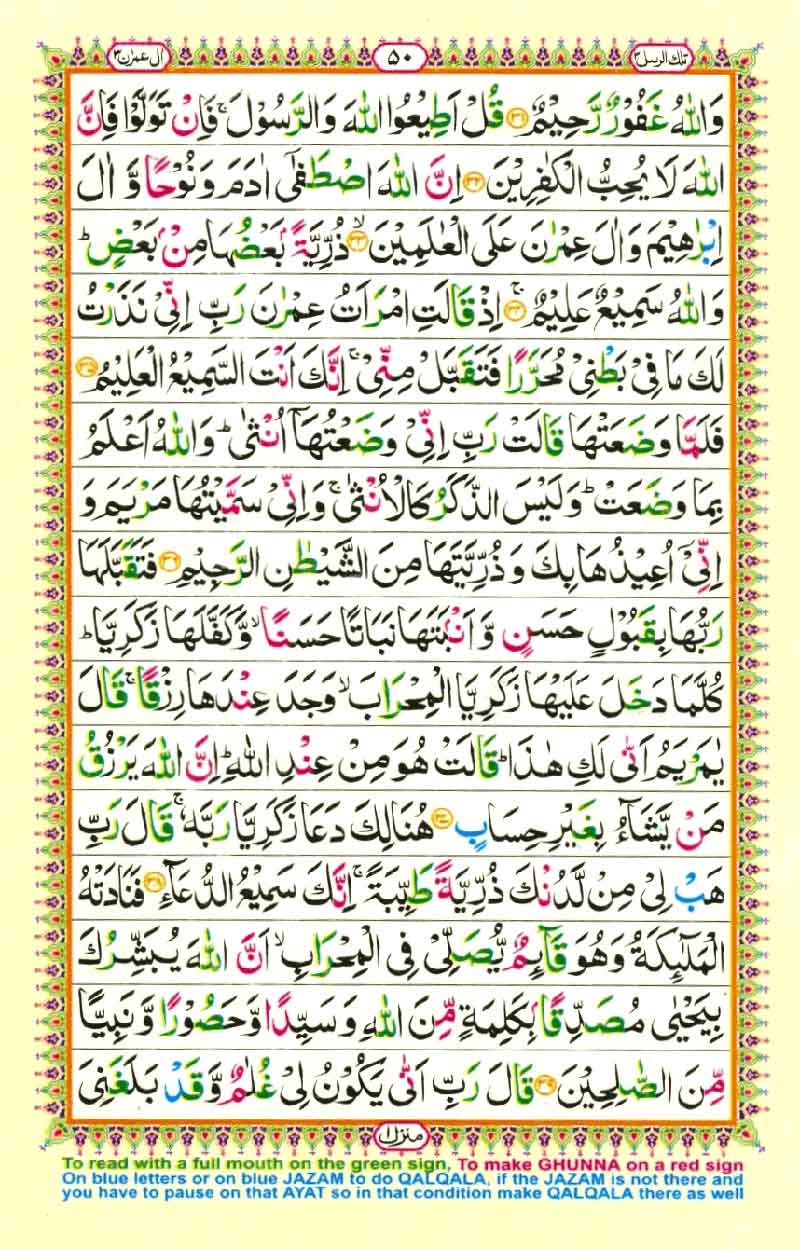 تلك الرسل ٣ ٥٠ اٰل عمرٰن ٣
وَاللّٰهُ غَفُوْرٌ رَّحِيْمٌ ﴿٣١﴾ قُلْ اَطِيْعُوا اللّٰهَ وَالرَّسُوْلَ ۚ فَاِنْ تَوَلَّوْا فَاِنَّ
اللّٰهَ لَا يُحِبُّ الْكٰفِرِيْنَ ﴿٣٢﴾ اِنَّ اللّٰهَ اصْطَفٰٓى اٰدَمَ وَنُوْحًا وَّ اٰلَ
اِبْرٰهِيْمَ وَاٰلَ عِمْرٰنَ عَلَى الْعٰلَمِيْنَ ﴿٣٣﴾ ۙ ذُرِّيَّةًۢ بَعْضُهَا مِنْۢ بَعْضٍ ؕ
وَاللّٰهُ سَمِيْعٌ عَلِيْمٌ ﴿٣٤﴾ ۚ اِذْ قَالَتِ امْرَاَتُ عِمْرٰنَ رَبِّ اِنِّىْ نَذَرْتُ
لَكَ مَا فِىْ بَطْنِىْ مُحَرَّرًا فَتَقَبَّلْ مِنِّىْ ۚ اِنَّكَ اَنْتَ السَّمِيْعُ الْعَلِيْمُ ﴿٣٥﴾
فَلَمَّا وَضَعَتْهَا قَالَتْ رَبِّ اِنِّىْ وَضَعْتُهَاۤ اُنْثٰى ؕ وَاللّٰهُ اَعْلَمُ
بِمَا وَضَعَتْ ؕ وَلَيْسَ الذَّكَرُ كَالْاُنْثٰى ۚ وَاِنِّىْ سَمَّيْتُهَا مَرْيَمَ وَ
اِنِّىْۤ اُعِيْذُهَا بِكَ وَ ذُرِّيَّتَهَا مِنَ الشَّيْطٰنِ الرَّجِيْمِ ﴿٣٦﴾ فَتَقَبَّلَهَا
رَبُّهَا بِقَبُوْلٍ حَسَنٍ وَّ اَنْۢبَتَهَا نَبَاتًا حَسَنًا ۙ وَّكَفَّلَهَا زَكَرِيَّا ؕ
كُلَّمَا دَخَلَ عَلَيْهَا زَكَرِيَّا الْمِحْرَابَ ۙ وَجَدَ عِنْدَهَا رِزْقًا ۚ قَالَ
يٰمَرْيَمُ اَنّٰى لَكِ هٰذَا ؕ قَالَتْ هُوَ مِنْ عِنْدِ اللّٰهِ ؕ اِنَّ اللّٰهَ يَرْزُقُ
مَنْ يَّشَآءُ بِغَيْرِ حِسَابٍ ﴿٣٧﴾ هُنَالِكَ دَعَا زَكَرِيَّا رَبَّهٗ ۚ قَالَ رَبِّ
هَبْ لِىْ مِنْ لَّدُنْكَ ذُرِّيَّةً طَيِّبَةً ۚ اِنَّكَ سَمِيْعُ الدُّعَآءِ ﴿٣٨﴾ فَنَادَتْهُ
الْمَلٰٓئِكَةُ وَهُوَ قَآئِمٌ يُّصَلِّىْ فِى الْمِحْرَابِ ۙ اَنَّ اللّٰهَ يُبَشِّرُكَ
بِيَحْيٰى مُصَدِّقًۢا بِكَلِمَةٍ مِّنَ اللّٰهِ وَسَيِّدًا وَّحَصُوْرًا وَّنَبِيًّا
مِّنَ الصّٰلِحِيْنَ ﴿٣٩﴾ قَالَ رَبِّ اَنّٰى يَكُوْنُ لِىْ غُلٰمٌ وَّقَدْ بَلَغَنِىَ
منزل ١
To read with a full mouth on the green sign, To make GHUNNA on a red sign
On blue letters or on blue JAZAM to do QALQALA, if the JAZAM is not there and
you have to pause on that AYAT so in that condition make QALQALA there as well